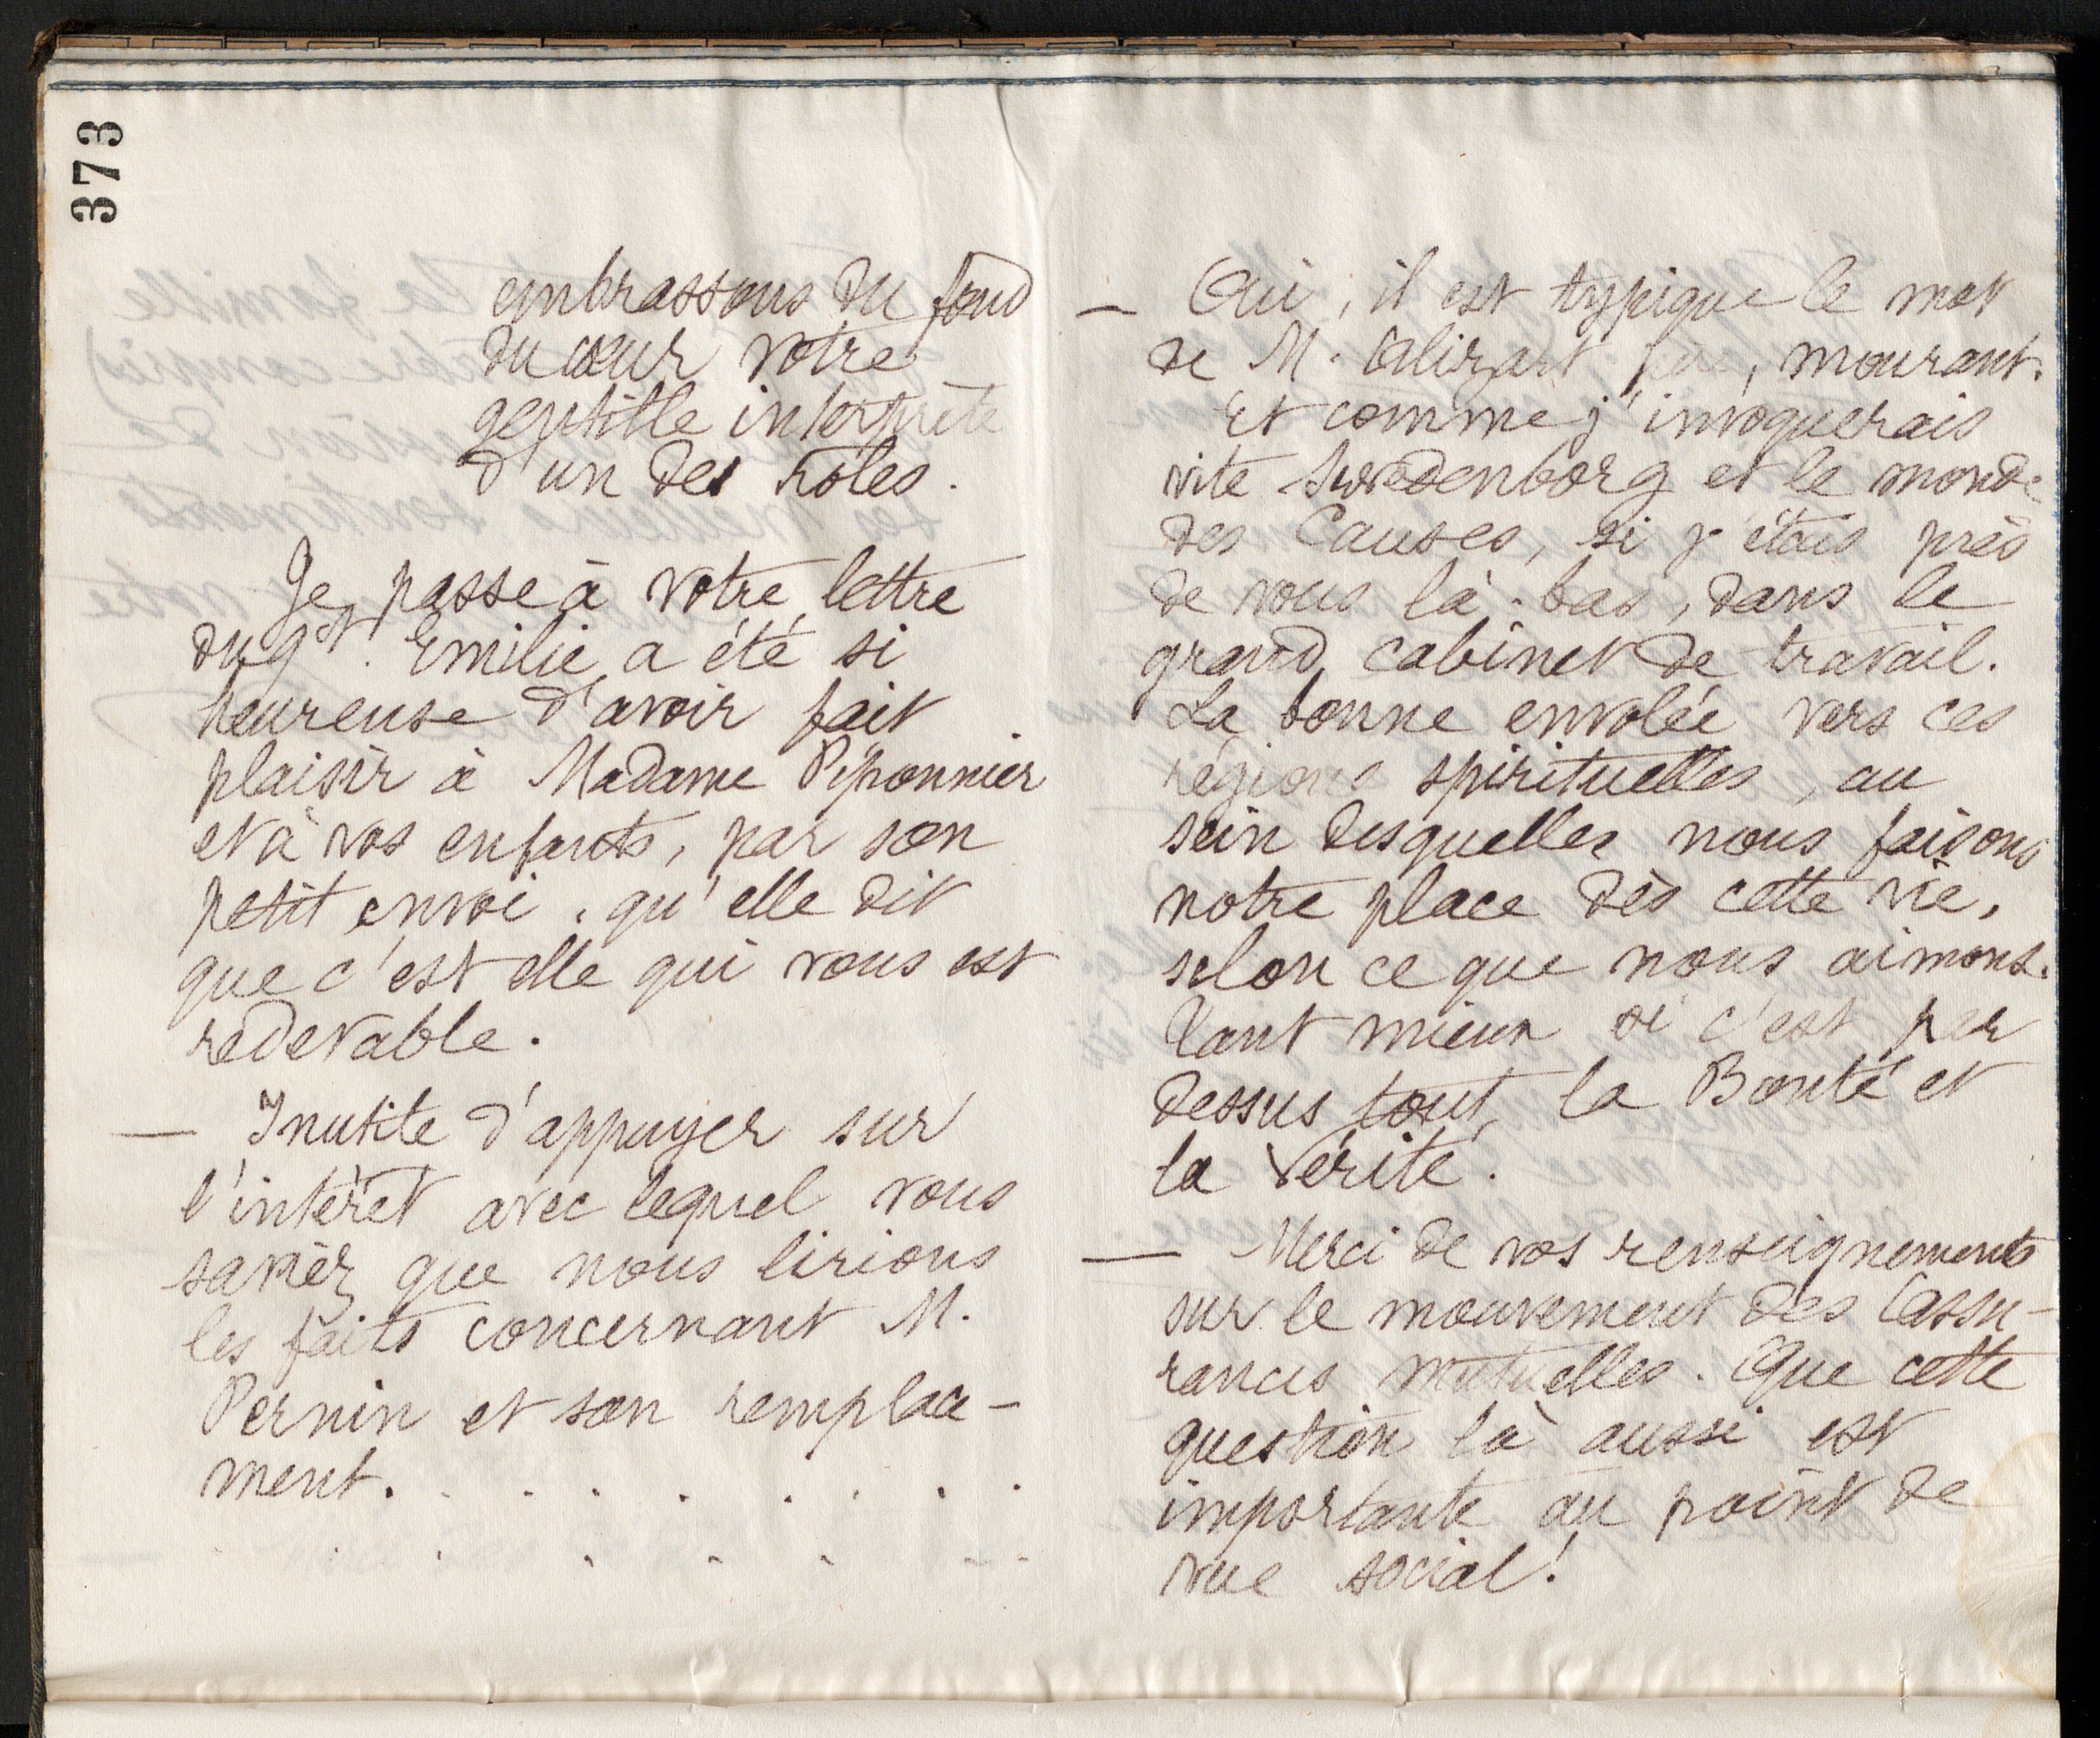 373
embrassons du fond
du cœur votre
gentille interprète
d'un des rôles.
Je passe à votre lettre
du 9 ct. Emilie a été si
heureuse d'avoir fait
plaisir à Madame Piponnier
et à vos enfants, par son
petit envoi, qu'elle dit
que c'est elle qui vous est
redevable.
— Inutile d'appuyer sur
l'intérêt avec lequel vous
saviez que nous lirions
les faits concernant M.
Pernin et son remplace-
ment. . . . . . . . .
. . . . . . . .
— Oui, il est typique le mot
de M. Alizart père, mourant.
Et comme j'invoquerais
vite Swedenborg et le monde
des Causes, si j'étais près
de vous là-bas, dans le
grand cabinet de travail.
La bonne envolée vers ces
régions spirituelles, au
sein desquelles nous faisons
notre place dès cette vie,
selon ce que nous aimons.
Tant mieux si c'est par
dessus tout, la Bonté et
la Vérité.
— Merci de vos renseignements
sur le mouvement des l'assu-
rances mutuelles. Que cette
question là aussi est
importante au point de
vue social!